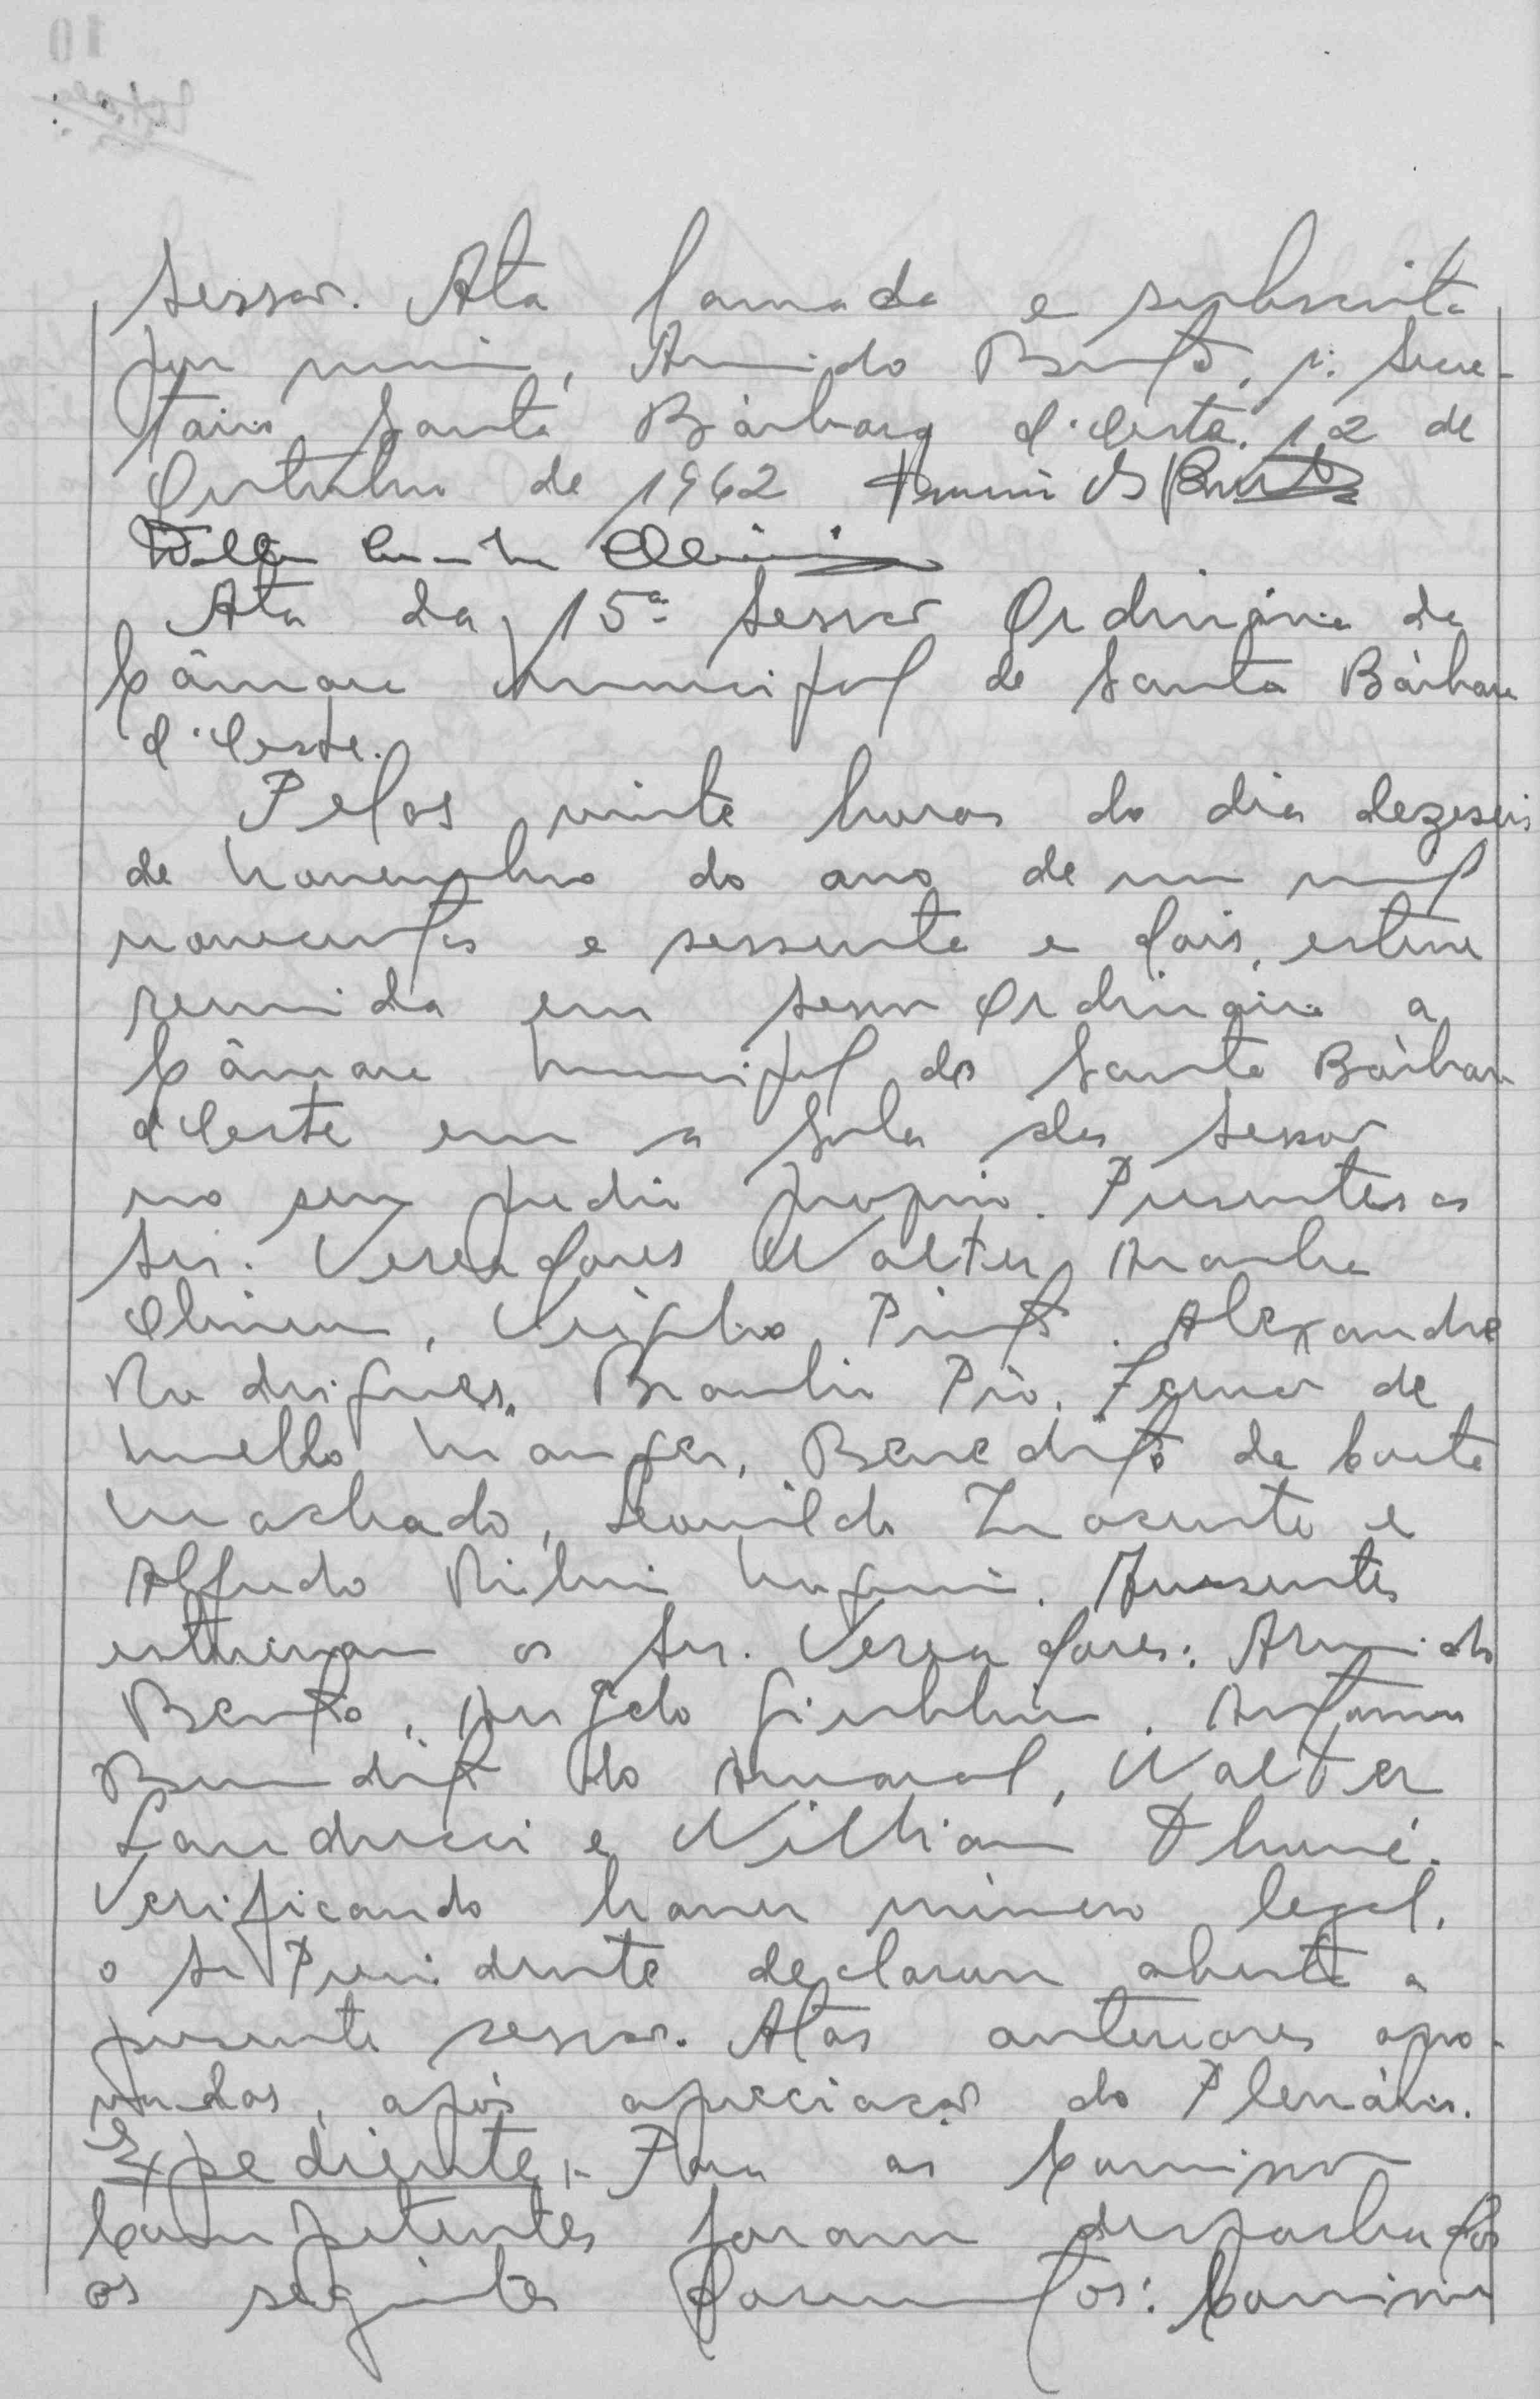 Sessão. Ata lavrada e subscrita
por mim, Armindo Bento, 1º Secre-
tário Santa Bárbara d'Oeste, 12 de
Outubro de 1962
Ata da 15ª Sessão Ordinária da
Câmara Municipal de Santa Bárbara
d'Oeste.
Pelas vinte horas do dia dezeseis
de Novembro do ano de um mil
novecentos e sessenta e dois, esteve
reunida em Sessão Ordinária a
Câmara Municipal de Santa Bárbara
d'Oeste em a Sala das Sessão
no seu predio proprio. Presentes os
Srs. Vereadores Walter
Oliveira, Pinto. Alexandre
Rodrigues, Braulio Pio, de
Mello, Benedito de
Machado, Leonildo e
Alfredo. Ausentes
estiveram os Srs. Vereadores: Armindo
Bento, Angelo, Antonio
Benedito do Amaral, Walter
Landucci e Willian.
Verificando haver número legal,
o Sr Presidente declarou aberta a
presente sessão. Atas anteriores apro-
vadas, após apreciação do Plenário.
Expediente,- Para as Comissão
Competentes foram despachados
os seguintes documentos: Comissão